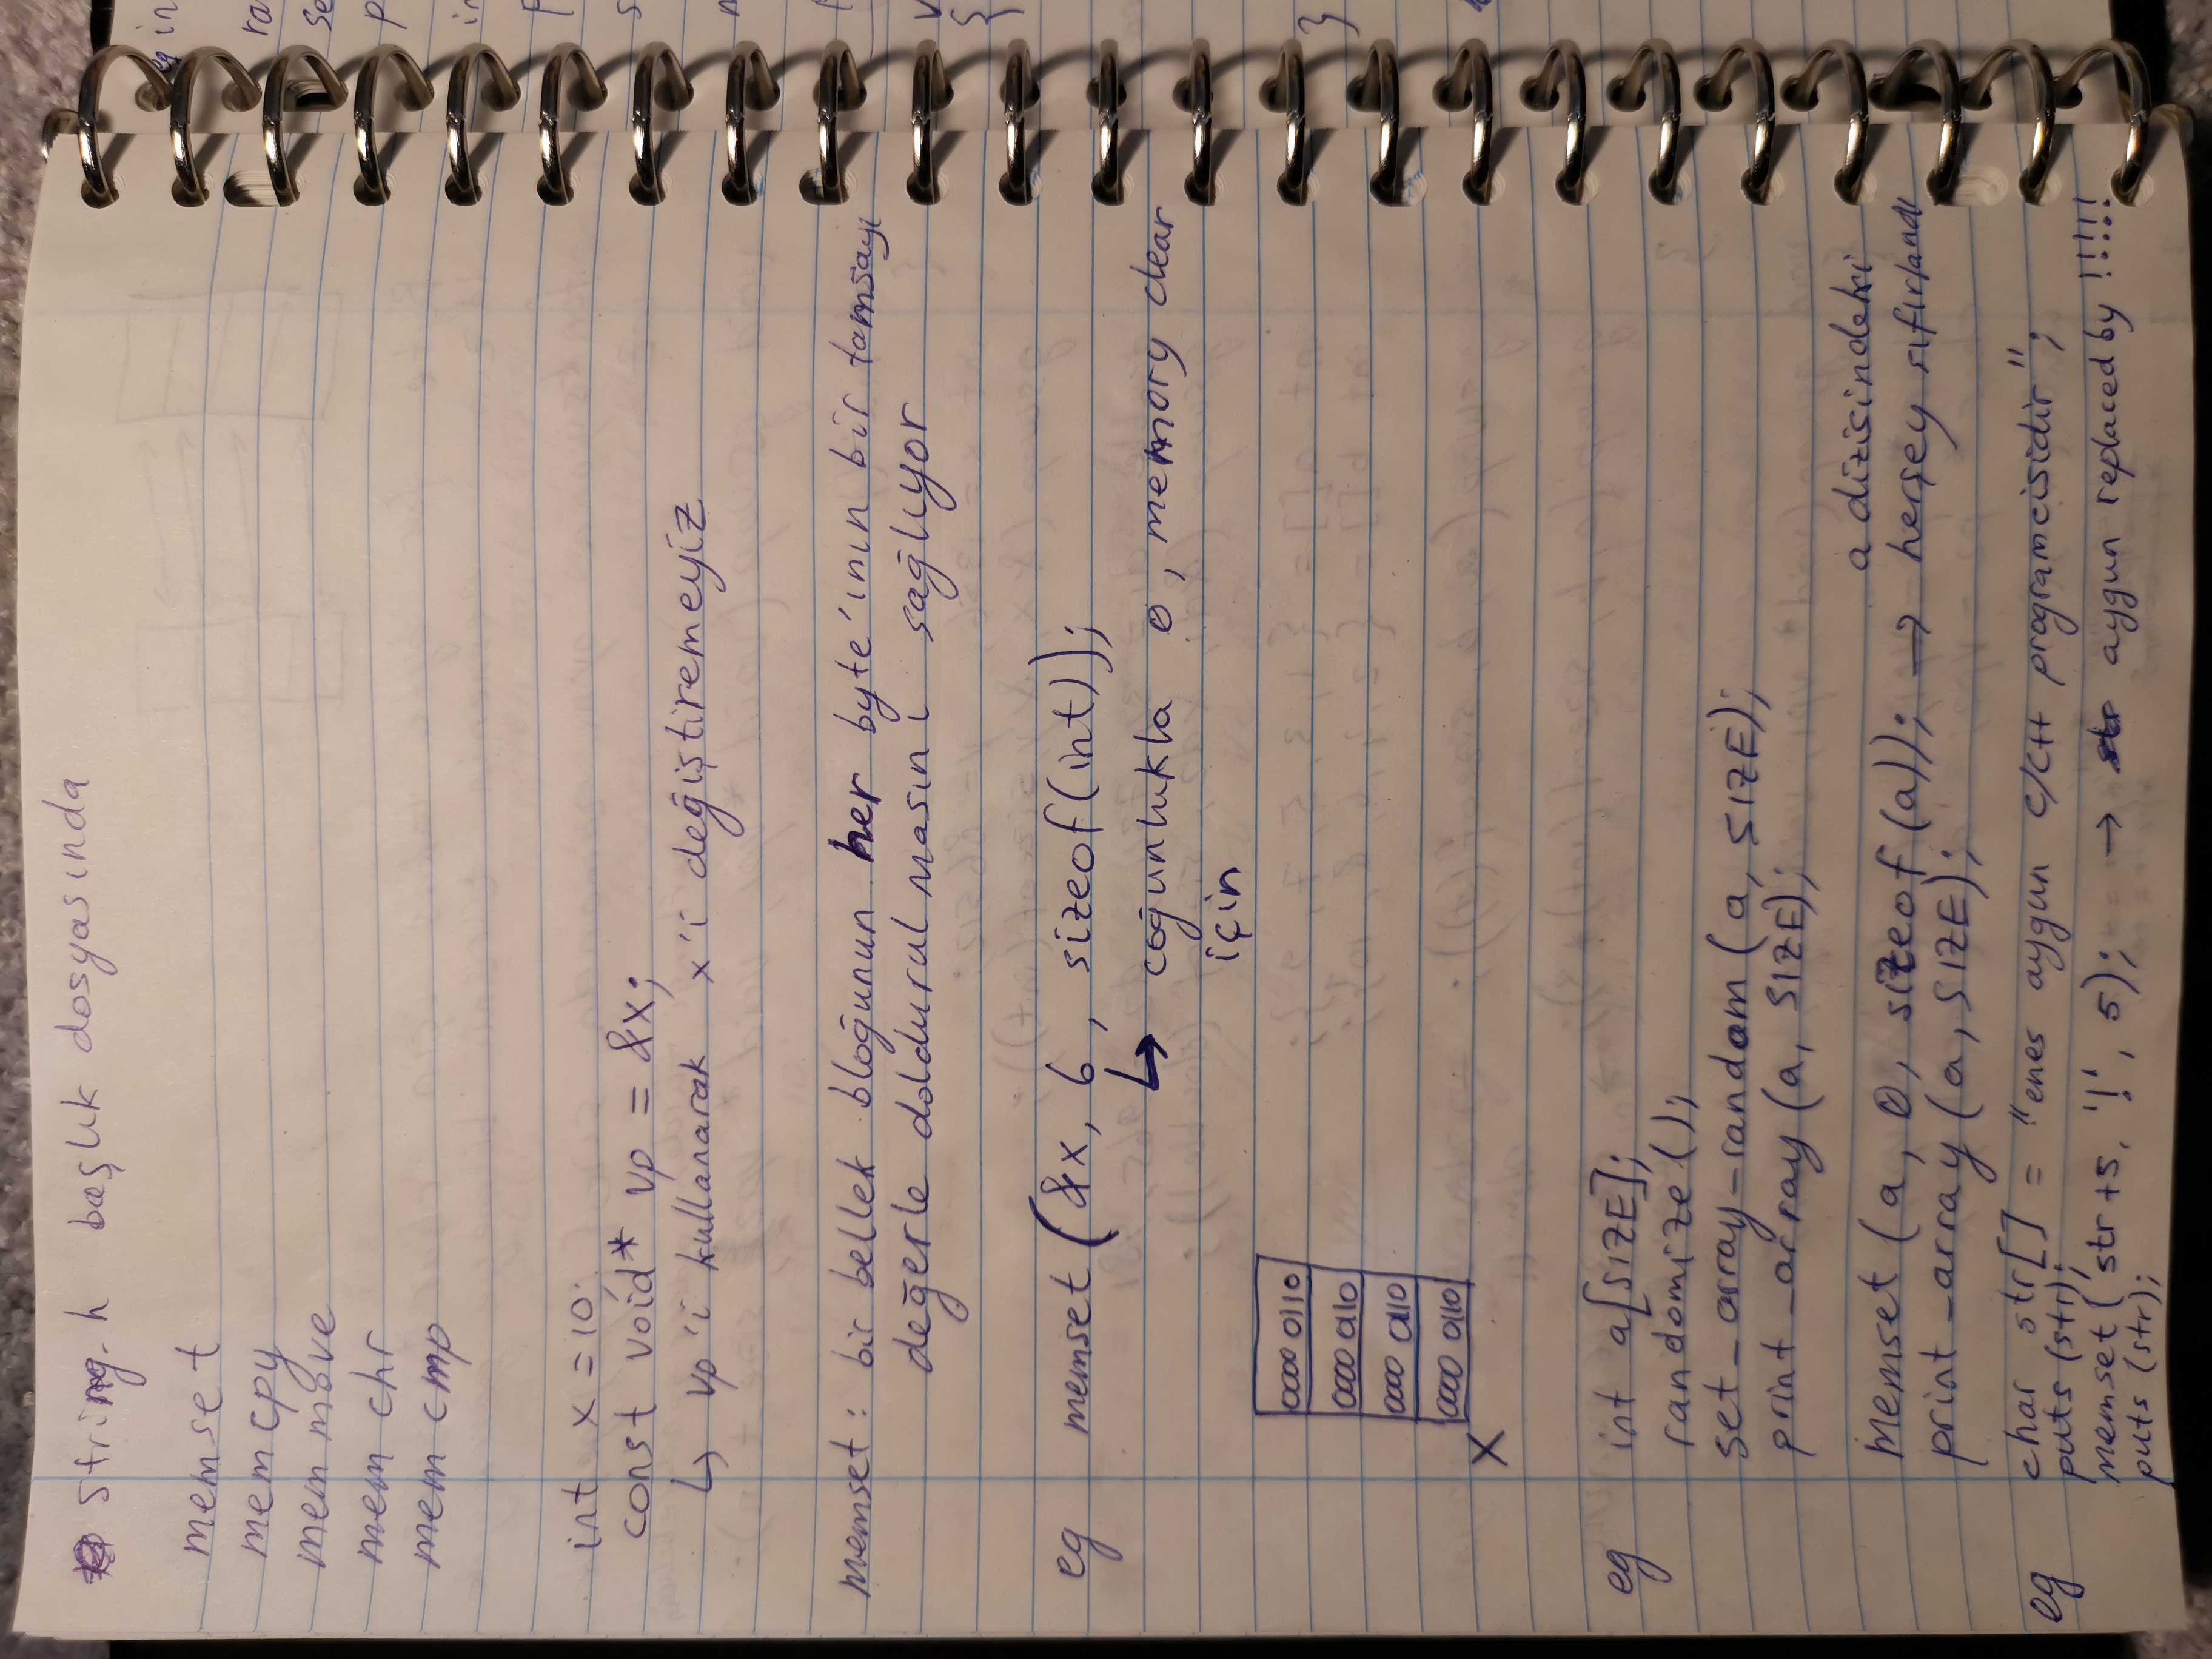 string.h başlık dosyasında
memset
memcpy
memmove
memchr
memcmp
int x = 10;
const void* vp = &x;
↳ vp'i kullanarak x'i değiştiremeyiz
memset: bir bellek bloğunun her byte'ının bir tamsayı
değerle doldurulmasını sağlıyor
eg memset(&x, 6, sizeof(int));
↳ coğunlukla 0, memory clear
için
0000 0110
0000 0110
0000 0110
0000 0110
X
eg int a[SIZE];
randomize();
set_array_random(a, SIZE);
print_array(a, SIZE);
a dizisindeki
memset(a, 0, sizeof(a)); → herşey sıfırlandı
print_array(a, SIZE);
eg char str[] = "enes aygun c/c++ programcisidir";
puts(str);
memset(str+5, '!', 5); → aygun replaced by !!!!!
puts(str);